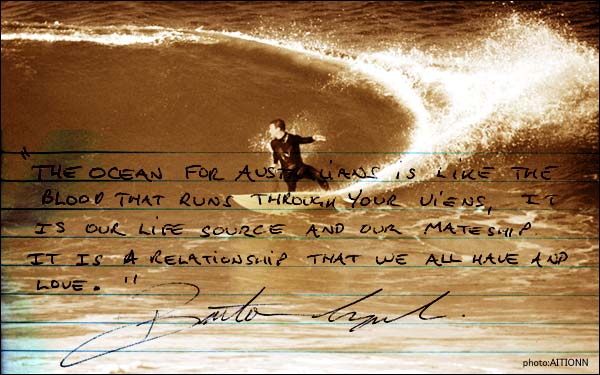 "THE OCEAN FOR AUSTRALIANS IS LIKE THE
BLOOD THAT RUNS THROUGH YOUR VIENS, IT
IS OUR LIFE SOURCE AND OUR MATESHIP
IT IS A RELATIONSHIP THAT WE ALL HAVE AND
LOVE."
photo:AITIONN